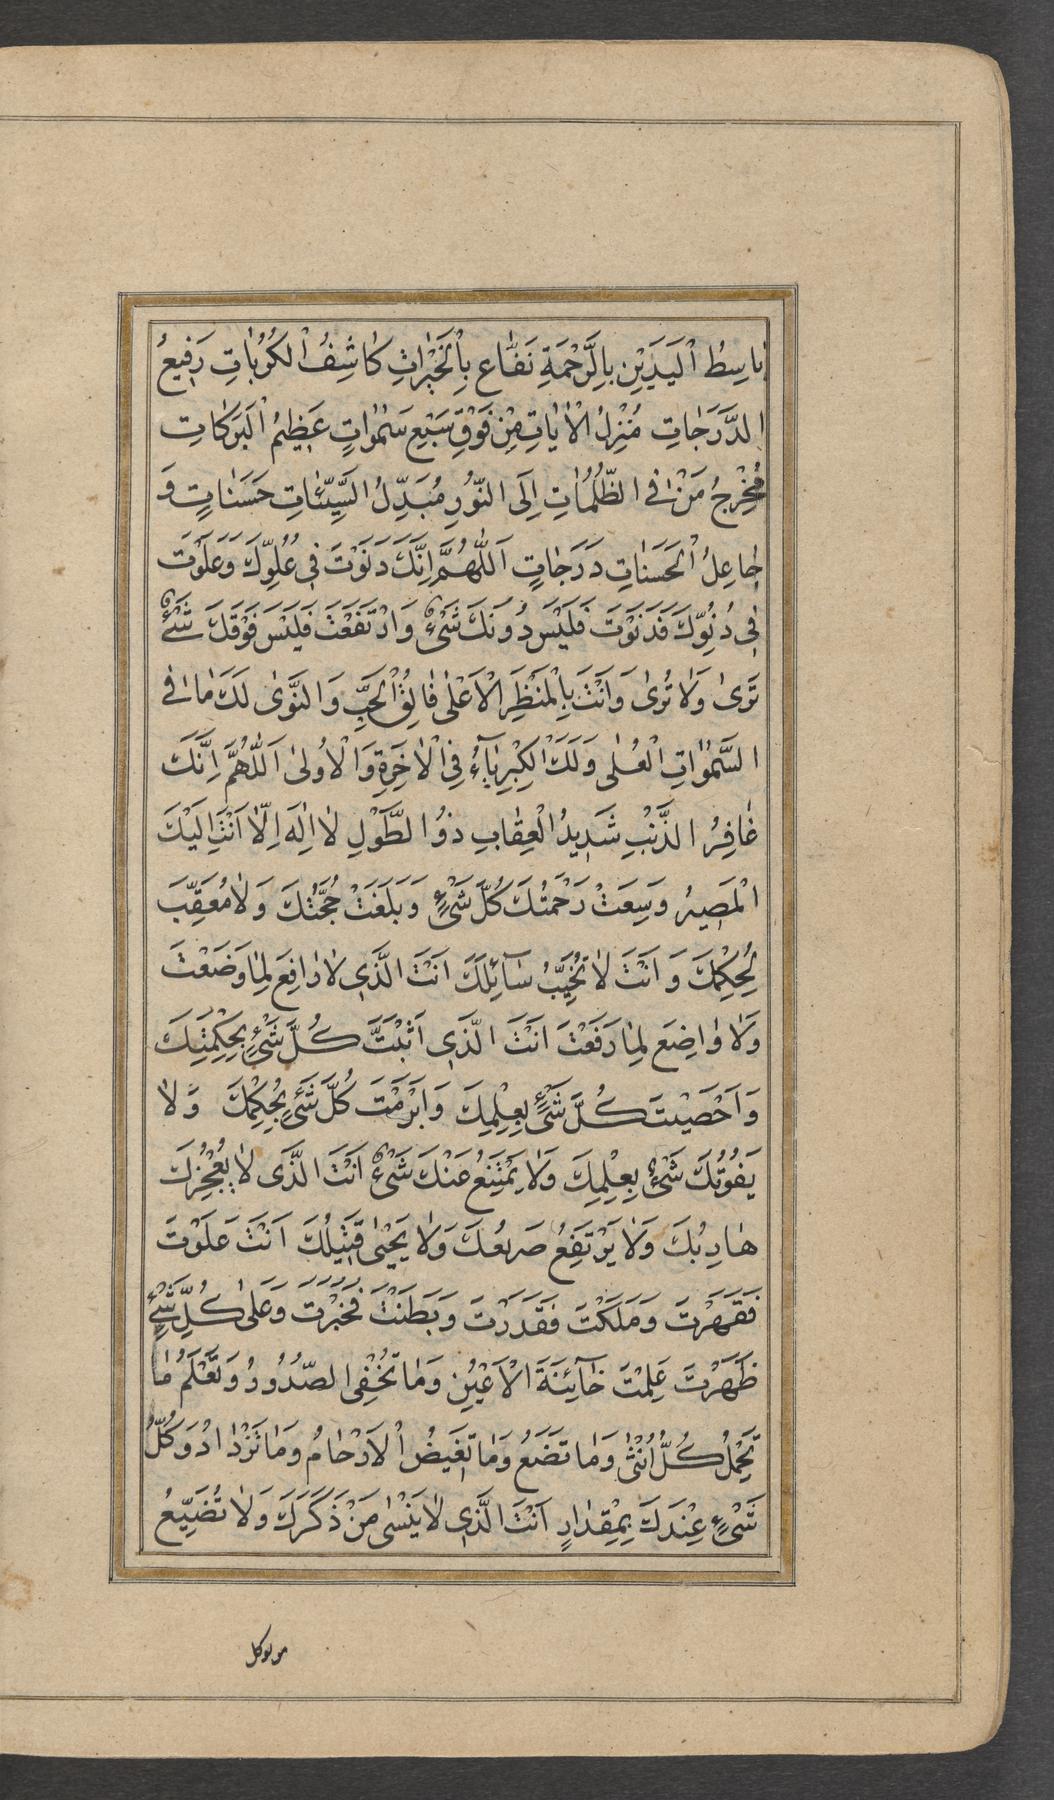 بَاسِطُ الْيَدَيْنِ بِالرَّحْمَةِ نَفَّاعِ بِالْخَيْرَاتِ كَاشِفُ الْكُرُبَاتِ رَفِيعُ
الدَّرَجَاتِ مُنْزِلُ الْاٰيَاتِ مِنْ فَوْقِ سَبْعِ سَمٰوَاتٍ عَظِيمُ الْبَرَكَاتِ
مُخْرِجُ مَنْ فِي الظُّلُمَاتِ اِلَى النُّورِ مُبَدِّلُ السَّيِّئَاتِ حَسَنَاتٍ وَ
جَاعِلُ الْحَسَنَاتِ دَرَجَاتٍ اَللّٰهُمَّ اِنَّكَ دَنَوْتَ فِي عُلُوِّكَ وَعَلَوْتَ
فِي دُنُوِّكَ فَدَنَوْتَ فَلَيْسَ دُونَكَ شَيْءٌ وَارْتَفَعْتَ فَلَيْسَ فَوْقَكَ شَيْءٌ
تَرىٰ وَلَا تُرىٰ وَاَنْتَ بِالْمَنْظَرِ الْاَعْلٰى فَالِقُ الْحَبِّ وَالنَّوٰى لَكَ مَا فِي
السَّمٰوَاتِ الْعُلٰى وَلَكَ الْكِبْرِيَآءُ فِي الْاٰخِرَةِ وَالْاُولٰى اَللّٰهُمَّ اِنَّكَ
غَافِرُ الذَّنْبِ شَدِيدُ الْعِقَابِ ذُو الطَّوْلِ لَا اِلٰهَ اِلَّا اَنْتَ اِلَيْكَ
الْمَصِيرُ وَسِعَتْ رَحْمَتُكَ كُلَّ شَيْءٍ وَبَلَغَتْ حُجَّتُكَ وَلَا مُعَقِّبَ
لِحُكْمِكَ وَاَنْتَ لَا تُخَيِّبُ سَآئِلَكَ اَنْتَ الَّذِي لَا رَافِعَ لِمَا وَضَعْتَ
وَلَا وَاضِعَ لِمَا رَفَعْتَ اَنْتَ الَّذِي اَثْبَتَّ كُلَّ شَيْءٍ بِحِكْمَتِكَ
وَاَحْصَيْتَ كُلَّ شَيْءٍ بِعِلْمِكَ وَاَبْرَمْتَ كُلَّ شَيْءٍ بِحُكْمِكَ وَلَا
يَفُوتُكَ شَيْءٌ بِعِلْمِكَ وَلَا يَمْتَنِعُ عَنْكَ شَيْءٌ اَنْتَ الَّذِي لَا يُعْجِزُكَ
هَارِبُكَ وَلَا يَرْتَفِعُ صَرِيعُكَ وَلَا يَحْيىٰ قَتِيلُكَ اَنْتَ عَلَوْتَ
فَقَهَرْتَ وَمَلَكْتَ فَقَدَرْتَ وَبَطَنْتَ فَخَبَرْتَ وَعَلٰى كُلِّ شَيْءٍ
ظَهَرْتَ عَلِمْتَ خَآئِنَةَ الْاَعْيُنِ وَمَا تُخْفِي الصُّدُورُ وَتَعْلَمُ مَا
تَحْمِلُ كُلُّ اُنْثٰى وَمَا تَضَعُ وَمَا تَغِيضُ الْاَرْحَامُ وَمَا تَزْدَادُ وَكُلُّ
شَيْءٍ عِنْدَكَ بِمِقْدَارٍ اَنْتَ الَّذِي لَا يَنْسٰى مَنْ ذَكَرَكَ وَلَا تُضَيِّعُ
من توكل